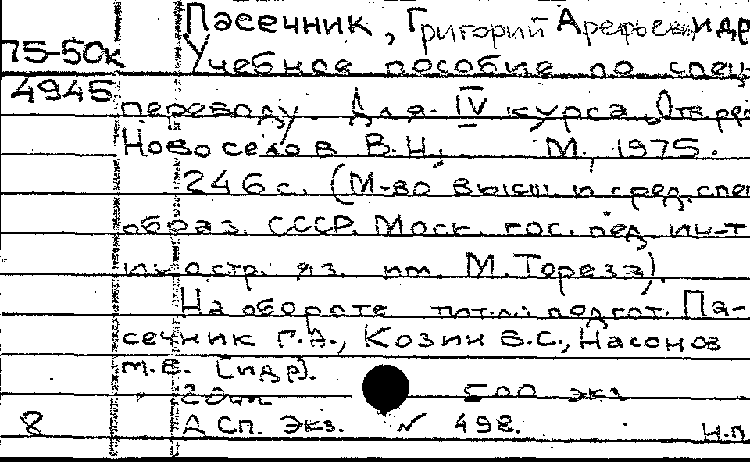 Пасечник, Григорий Арефьевич и др
75-50к
Учебное пособие по спец.
4945
переводу. Для IV курса. Отв. ред.
Новоселов В.Н. М., 1975.
246 с. (М-во высш. и сред. спец
образ. СССР. Моск. гос. пед. ин-т
иностр. яз. им. М. Тореза).
На обороте тит. л.: подгот. Па-
сечник Г.А., Козин В.С., Насонов
М.В. [и др].
20 500 экз
8 А Сп. Экз. N 498. Н.п